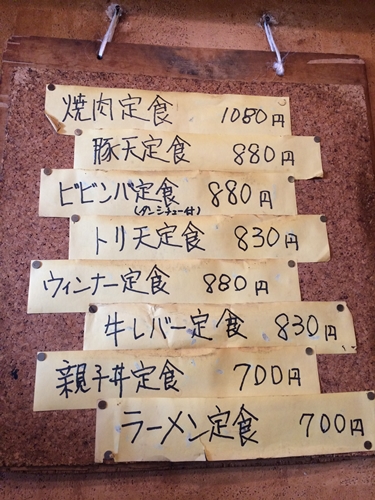 焼肉定食 1080円
豚天定食 880円
ビビンバ定食 880円
(ダシジチュー付)
トリ天定食 830円
ウィンナー定食 880円
牛レバー定食 830円
親子丼定食 700円
ラーメン定食 700円